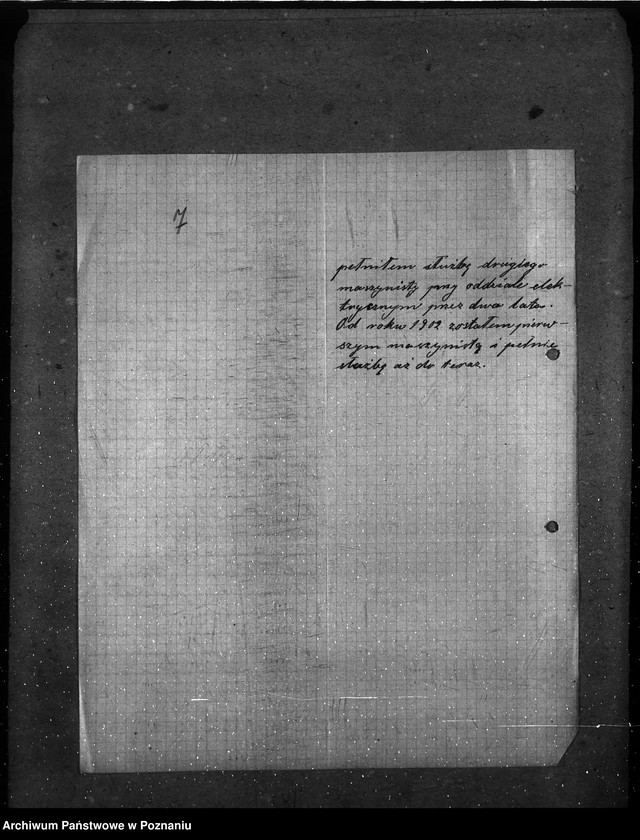 7
pełniłem służbę drugiego
maszynisty przy oddziale elek-
trycznym przez dwa lata.
Od roku 1912 zostałem pierw-
szym maszynistą i pełnię
służbę aż do teraz.
Archiwum Państwowe w Poznaniu